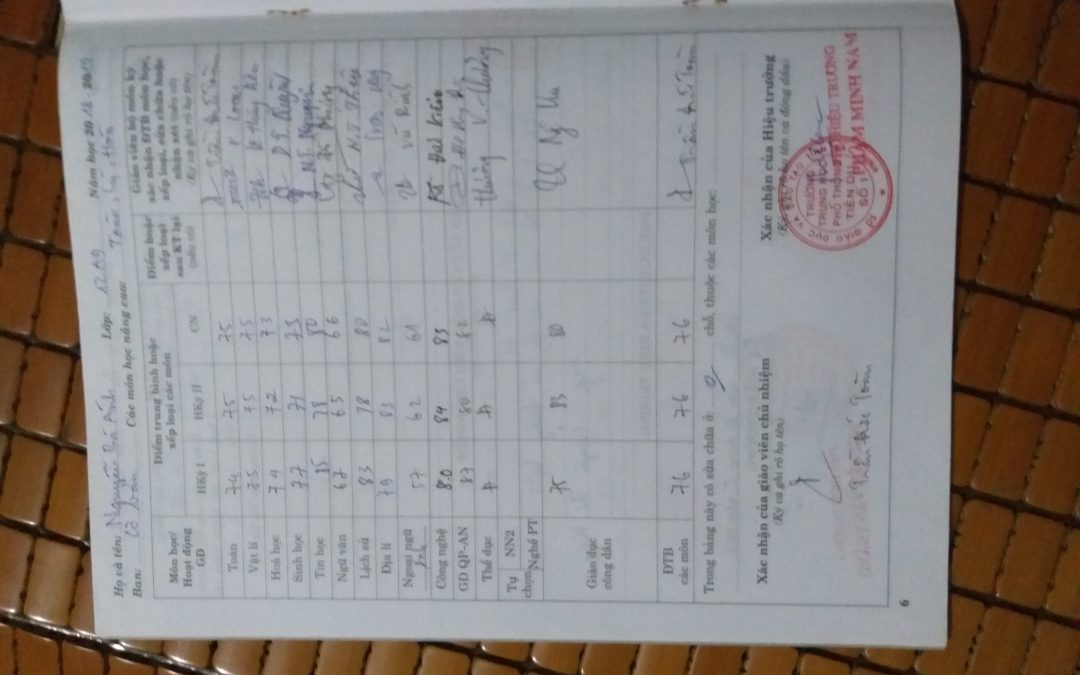 Họ và tên: Nguyễn Bá Anh Lớp: 12A9 Năm học 2018 2019
Ban: Cơ bản Các môn học nâng cao: Toán,
Môn học/ Hoạt động GD
Điểm trung bình hoặc xếp loại các môn
Điểm hoặc xếp loại sau KT lại (nếu có)
Giáo viên bộ môn ký xác nhận ĐTB môn học, xếp loại, sửa chữa hoặc nhận xét (nếu có)
(Ký và ghi rõ họ tên)
HKỳ I HKỳ II CN
Toán 74 75 75
Vật lí 75 75 75
Hoá học 74 72 73
Sinh học 77 71 73
Tin học 85 78 80
Ngữ văn 67 65 66
Lịch sử 83 78 80
Địa lí 79 83 82
Ngoại ngữ 57 62 61
Công nghệ 8.0 84 83
GD QP-AN 87 80 82
Thể dục Đ Đ Đ
Tự chọn NN2
Nghề PT
Giáo dục công dân 75 83 80
ĐTB các môn 76 76 76
Trong bảng này có sửa chữa ở: 0 chỗ, thuộc các môn học:
Xác nhận của giáo viên chủ nhiệm
(Ký và ghi rõ họ tên)
Xác nhận của Hiệu trưởng
(Ký, ghi rõ họ tên và đóng dấu)
TRƯỜNG
TRUNG HỌC
PHỔ THÔNG
TIÊN DU
SỐ 1
HIỆU TRƯỞNG
PHẠM MINH NAM
6